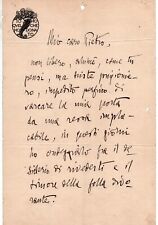 Mio caro Pietro,
non libero, ahimé, come tu
pensi, ma triste prigionie-
ro, impedito perfino di
varcare la mia porta
da una regola impla-
cabile, in questi giorni
ho ondeggiato fra il de-
siderio di rivederti e il
timore della folla divo-
rante.